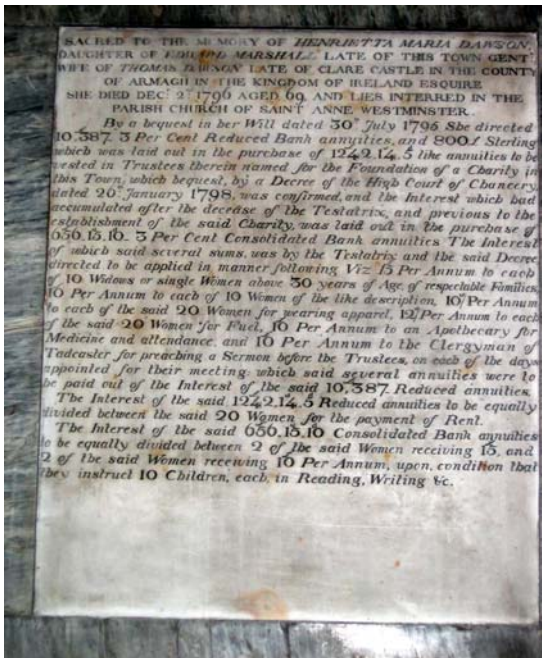 SACRED TO THE MEMORY OF HENRIETTA MARIA DAWSON,
DAUGHTER OF EDWARD MARSHALL LATE OF THIS TOWN GENT
WIFE OF THOMAS DAWSON LATE OF CLARE CASTLE IN THE COUNTY
OF ARMAGH IN THE KINGDOM OF IRELAND ESQUIRE
SHE DIED DEC.R 2.D 1796 AGED 69, AND LIES INTERRED IN THE
PARISH CHURCH OF SAINT ANNE WESTMINSTER.
By a bequest in her Will dated 30th July 1795 She directed
10,387. 3 Per Cent Reduced Bank annuities, and 800£ Sterling
which was laid out in the purchase of 1242.14.5 like annuities to be
vested in Trustees therein named for the Foundation of a Charity in
this Town, which bequest, by a Decree of the High Court of Chancery,
dated 26th January 1798, was confirmed, and the Interest which had
accumulated after the decease of the Testatrix, and previous to the
establishment of the said Charity, was laid out in the purchase of
656.13.10. 3 Per Cent Consolidated Bank annuities The Interest
of which said several sums, was by the Testatrix and the said Decree
directed to be applied in manner following Viz 15 Per Annum to each
of 10 Widows or single Women above 50 years of Age, of respectable Families,
10 Per Annum to each of 10 Women of the like description, 10/ Per Annum
to each of the said 20 Women for wearing apparel, 12/ Per Annum to each
of the said 20 Women for Fuel, 10 Per Annum to an Apothecary for
Medicine and attendance, and 10 Per Annum to the Clergyman of
Tadcaster for preaching a Sermon before the Trustees, on each of the days
appointed for their meeting: which said several annuities were to
be paid out of the Interest of the said 10,387. Reduced annuities.
The Interest of the said 1242.14.5 Reduced annuities to be equally
divided between the said 20 Women for the payment of Rent.
The Interest of the said 656.13.10 Consolidated Bank annuities
to be equally divided between 2 of the said Women receiving 15, and
2 of the said Women receiving 10 Per Annum, upon condition that
they instruct 10 Children, each, in Reading, Writing &c.